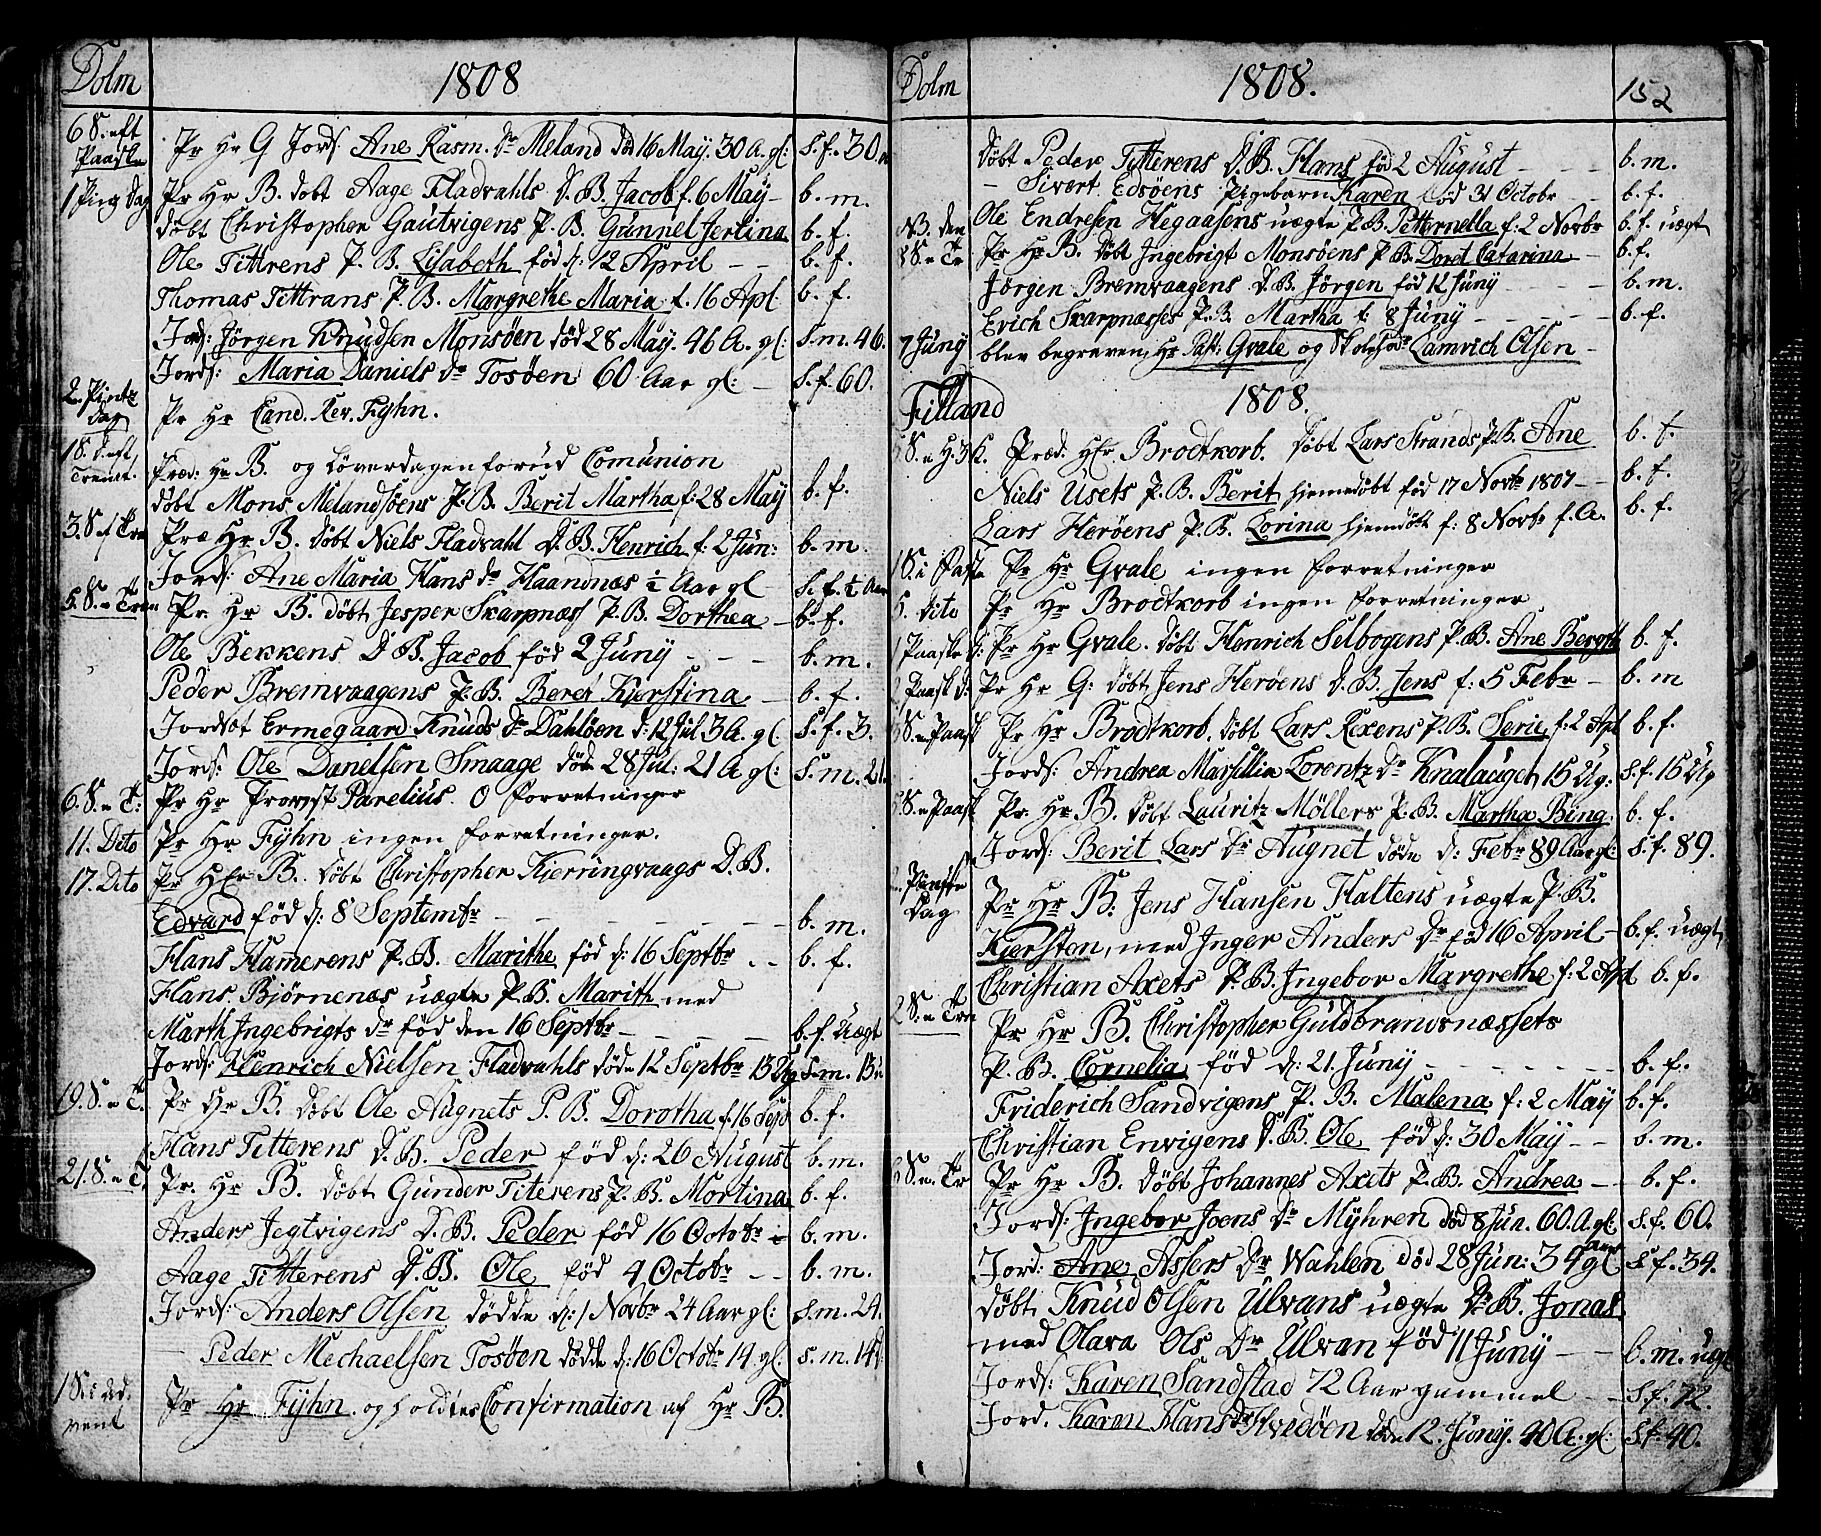 Dolm 1808
6 S. eft Paaske Pr Hr G Jords. Ane Rasm. Dr Meland død 16 May. 30 A. gl: S. f. 30
1 Ping Dag Pr Hr B. døbt Aage Fladvahls D. B. Jacob f. 6 May b. m.
døbt Christopher Gautvigens P. B. Gunnel Sertina b. f.
Ole Tittrens P. B. Lisabeth fød d: 12 April b. f.
Thomas Tittrans P. B. Margrethe Maria f. 16 Apl b. f.
Jords: Jørgen Knudsen Monsøen død 28 May. 46 A. gl: S. m. 46.
Jords: Maria Daniels Dr Tosøen 60 Aar gl: S. f. 60.
2. Pintz dag Pr Hr Cand. Rev. Fyhn.
1 S. d. eft Trenit. Præd: Hr B. og Löverdagen forud Comunion
døbt Mons Melandsöens P. B. Berit Martha f: 28 May b. f.
3. S. e Præ Hr B. døbt Niels Fladvahl D. B. Henrich f. 2 Jun: b. m.
Jords: Ane Maria Hans Dr Haandnæs ½ Aar gl S. f. ½ Aar
5. S. e Tren Pr. Hr B. døbt Jesper Skarpnæs P. B. Dorthea b. f.
Ole Bekkens D B. Jacob fød 2 Juny b. m.
Peder Bremvaagens P. B. Beret Kjerstina b. f.
Jordsət Ermegaard Knuds Dr Dahløen d: 12 Jul 3 A. gl S. f. 3.
Jords: Ole Danelsen Smaage døde 28 Jul: 21 A gl: S. m. 21
6. S. e T: Pr Hr Provst Parelius. 0 forretninger
11. Dito Pr Hr Fyhn ingen forretninger.
17. Dito Pr Hr B. døbt Christopher Kjerringvaags D. B.
Edvard fød d: 8 Septembr b. m.
Hans Hamerens P. B. Marithe fød d: 16 Septbr b. f.
Hans Bjørnenæs uægte P. B. Marith med
Marth Ingebrigts Dr fød den 16 Septbr b. f. Uægt
Jords: Henrich Nielsen Fladvahls døde 12 Septbr 13 Ug S. m. 13
19. S. e T. Pr Hr B. døbt Ole Augnets P. B. Dorotha f. 16 Sept b. f.
Hans Titterens D. B. Peder fød d: 26 August b. m.
21. S. e T. Pr. Hr B. døbt Gunder Titerens P. B. Mortina b. f.
Anders Jegtvigens D. B. Peder fød 16 Octobr b. m.
Aage Titterens D. B. Ole fød 4 Octobr b. m.
Jords: Anders Olsen dødde d: 1 Novbr 24 Aar gl: S. m. 24.
Peder Mechaelsen Tosøen dødde d: 16 Octobr 14. gl. S. m. 14
1 S. i advent Pr Hr Fyhn og holdtes Confirmation af Hr B.
Dolm 1808. 152
døbt Peder Titterens D. B. Hans fød 2 August b. m.
Sivert Edsøens Pigebarn Karen fød 31 Octobr b. f.
Ole Endresen Hegaasens uægte P. B. Petternella f: 2 Novbr b. f. uægt
NB. den
8 S. e Tr Pr Hr B. døbt Ingebrigt Monsøens P. B. Doret Catarina b. f.
Jørgen Bremvaagens D. B. Jörgen fød 12 Juny b. m.
Erich Skarpnæsses P. B. Martha f: 8 Juny b. f.
7 Juny blev begraven, Hr Past. Gvale og Skoleh. Lamvich Olsen
Filland 1808.
S. e H. 3 K. Præd. Hr. Brodtkorb. døbt Lars Strands P. B. Ane b. f.
Niels Usets P. B. Berit hjemedøbt fød 17 Novbr 1807 b. f.
Lars Herøens P. B. Lorina hjemdøbt f: 8 Novbr f. A. b. f.
1 S. i Faste Pr Hr Gvale ingen forretninger
5. dito Pr Hr Brodtkorb ingen forretninger
Paaske d: Pr Hr Gvale. døbt Henrich Selbogens P. B. Ane Bergth b. f.
2 Paask d: Pr Hr G: døbt Jens Herøens D. B. Jens f: 5 Febr b. m
S. e Paask Pr Hr Brodtkorb. døbt Lars Rexens P. B. Seri f: 2 Apl b. f.
Jords: Andrea Marsillia Lorentz Dr Knalauget 15 Ug: S. f. 15 Ug
S. e Paask Pr. Hr B. døbt Lauritz Möllers P. B. Martha Bing. b. f.
Jords: Berit Lars Dr Augnet døde d: Febr 89 Aar gl: S. f. 89.
Pintste Dag Pr Hr B: Jens Hansen Haltens uægte P. B.
Kjersten, med Inger Anders Dr fød 16 April b. f. uægt
Christian Axets P. B. Ingebor Margrethe f: 2 Apl b. f.
2 S. e Tren Pr Hr B. Christopher Guldbrandsnæssets
P. B. Cornelia fød d: 21. Juny b. f.
Friderich Sandvigens P. B. Malena f: 2 May b. f.
Christian Envigens D. B. Ole fød d: 30 May b. m.
6 S. e. Tr Pr Hr B. døbt Johannes Axets P. B. Andrea b. f.
Jords: Ingebor Joens Dr Myhren død 8 Jun. 60. A. gl: S. f. 60.
Jord: Ane Assers Dr Wahlen død 28 Jun: 34 Aar gl S. f. 34.
døbt Knud Olsen Ulvans uægte D. B. Jonas
med Olava Ols Dr Ulvan fød 11 Juny b. m. ugt
Jords: Karen Sandstad 72 Aar gammel S. f. 72.
Jord. Karen Hans Dr Hvedøen døde 12. Juny. 40 A. gl: S. f. 40.